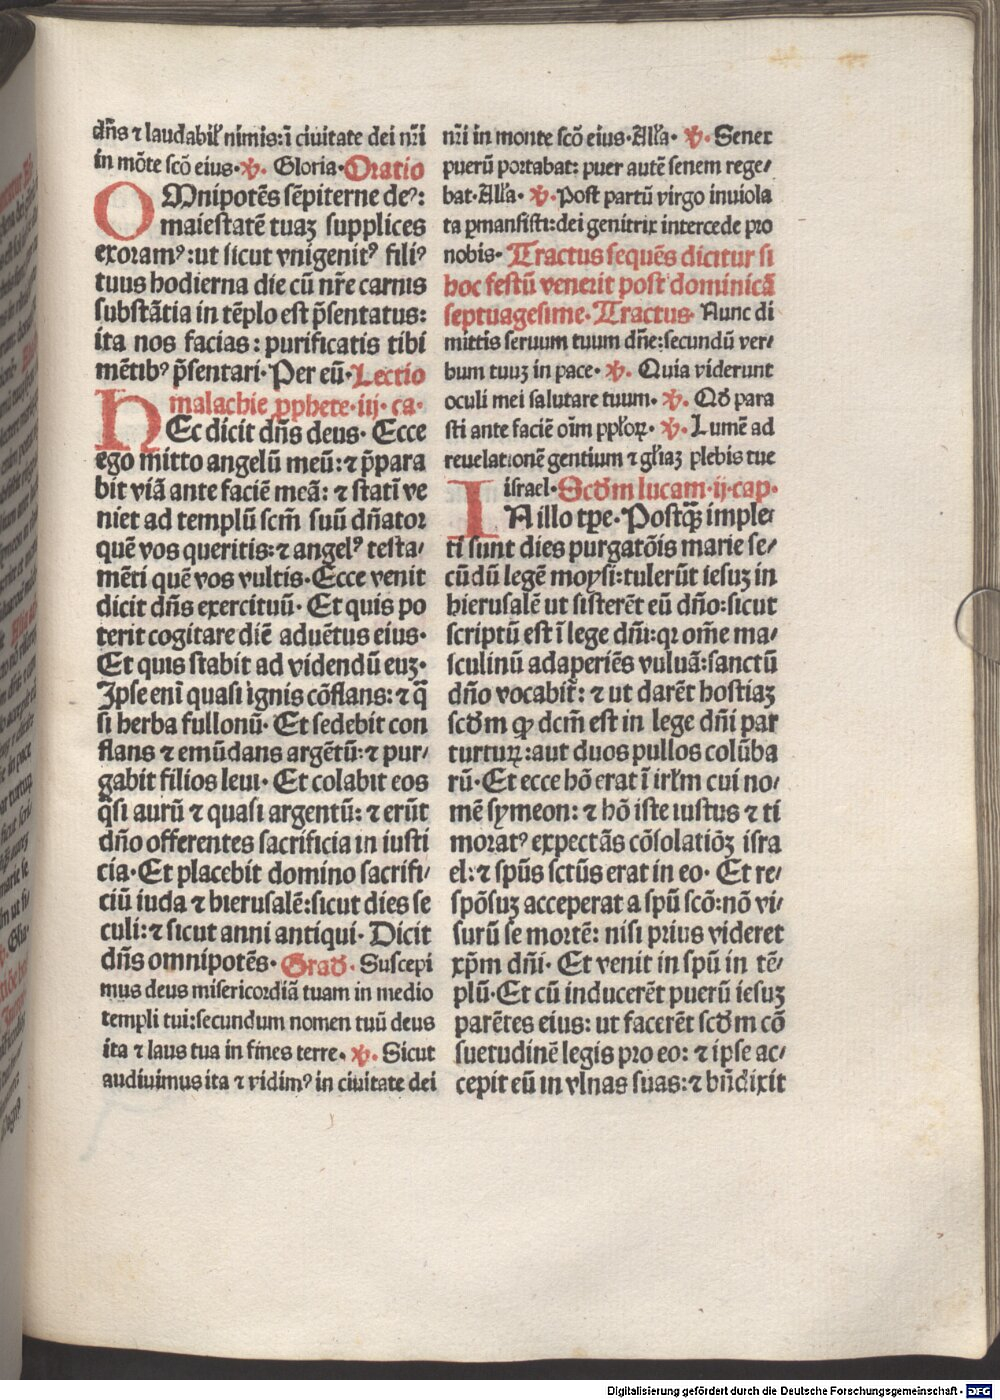 dn̄s ⁊ laudabil̕ nimis:ī ciuitate dei nr̄i
in mōte scō eius·℣. Gloria·Oratio
OMnipotēs sēpiterne deꝰ:
maiestatē tuaꝫ supplices
exoramꝰ:ut sicut vnigenitꝰ filiꝰ
tuus hodierna die cū nr̄e carnis
substātia in tēplo est p̄sentatus:
ita nos facias: purificatis tibi
mētibꝰ p̄sentari·Per eū·Lectio
malachie ꝓphete·iij·ca·
HEc dicit dn̄s deus· Ecce
ego mitto angelū meū:⁊ p̄para
bit viā ante faciē meā: ⁊ statī ve
niet ad templū scm̄ suū dn̄ator
quē vos queritis:⁊ angelꝰ testa/
mēti quē vos vultis·Ecce venit
dicit dn̄s exercituū· Et quis po
terit cogitare diē aduētus eius·
Et quis stabit ad videndū euꝫ·
Ipse enī quasi ignis cōflans: ⁊ q̄
si herba fullonū· Et sedebit con
flans ⁊ emūdans argētū:⁊ pur/
gabit filios leui· Et colabit eos
q̄si aurū ⁊ quasi argentū: ⁊ erūt
dn̄o offerentes sacrificia in iusti
cia·Et placebit domino sacrifi/
ciū iuda ⁊ hierusalē:sicut dies se
culi:⁊ sicut anni antiqui· Dicit
dn̄s omnipotēs· Grad̄· Suscepi
mus deus misericordiā tuam in medio
templi tui:secundum nomen tuū deus
ita ⁊ laus tua in fines terre· ℣. Sicut
audiuimus ita ⁊ vidimꝰ in ciuitate dei
nr̄i in monte scō eius·All̕a· ℣. Senex
puerū portabat: puer autē senem rege/
bat·All̕a· ℣.Post partū virgo inuiola
ta ꝑmansisti:dei genitrix intercede pro
nobis· Tractus sequēs dicitur si
hoc festū venerit post dominicā
septuagesime·Tractus· Nunc di
mittis seruum tuum dn̄e:secundū ver/
bum tuuꝫ in pace· ℣. Quia viderunt
oculi mei salutare tuum· ℣. Qd̄ para
sti ante faciē oīm ppl̕oꝝ· ℣. Lumē ad
reuelationē gentium ⁊ gl̕iaꝫ plebis tue
israel·Scd̄m lucam·ij·cap·
IN illo tꝑe·Postqꝫ̄ imple
ti sunt dies purgatōis marie se/
cūdū legē moysi:tulerūt iesuꝫ in
hierusalē ut sisterēt eū dn̄o:sicut
scriptū est ī lege dn̄i:qꝛ om̄e ma/
sculinū adaperiēs vuluā:sanctū
dn̄o vocabit̄: ⁊ ut darēt hostiaꝫ
scd̄m ꝙ dcm̄ est in lege dn̄i par
turturꝝ:aut duos pullos colūba
rū·Et ecce hō erat ī irl̄m cui no/
mē symeon: ⁊ hō iste iustus ⁊ ti
moratꝰ expectās cōsolatiōꝫ isra
el:⁊ spūs sctūs erat in eo· Et re/
spōsuꝫ acceperat a spū scō:nō vi/
surū se mortē: nisi prius videret
xp̄m dn̄i· Et venit in spū in tē/
plū·Et cū inducerēt puerū iesuꝫ
parētes eius: ut facerēt scd̄m cō
suetudinē legis pro eo: ⁊ ipse ac/
cepit eū in vlnas suas:⁊ bn̄dixit
Digitalisierung gefördert durch die Deutsche Forschungsgemeinschaft - DFG